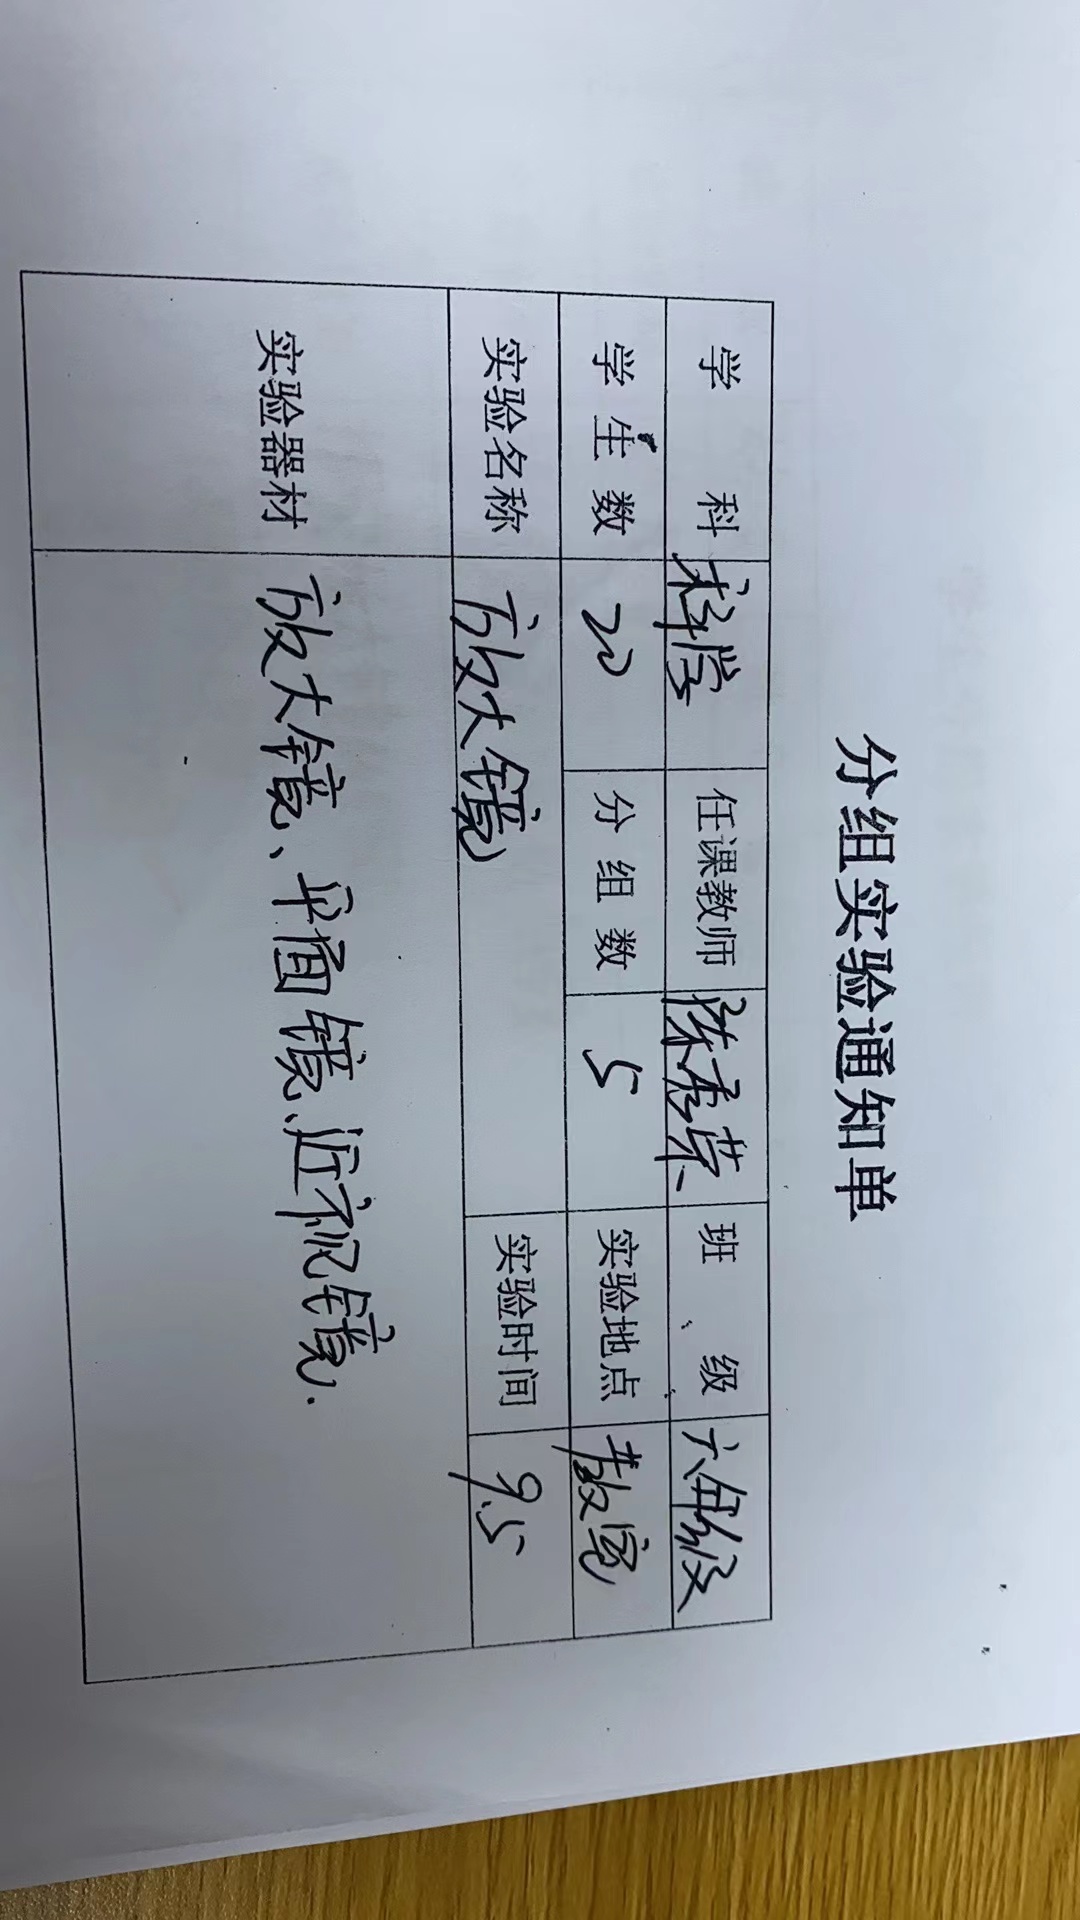 分组实验通知单
学科 科学 任课教师 陈秀荣 班级 六年级
学生数 20 分组数 5 实验地点 教室
实验名称 放大镜 实验时间 9.5
实验器材 放大镜、平面镜、近视镜.